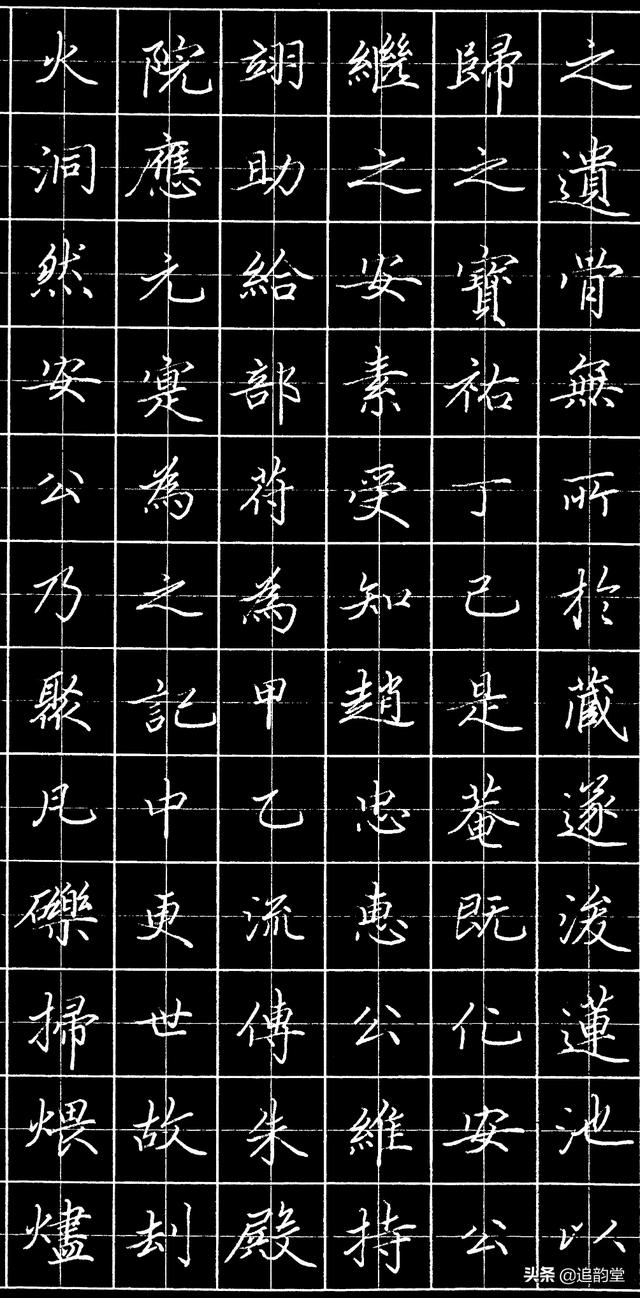 之遺骨無所於藏遂浚蓮池以
歸之寶祐丁巳是菴既化安公
繼之安素受知趙忠惠公維持
翊助給部符為甲乙流傳朱殿
院應元寔為之記中更世故刦
火洞然安公乃聚凡礫掃煨燼
头条 @追韵堂